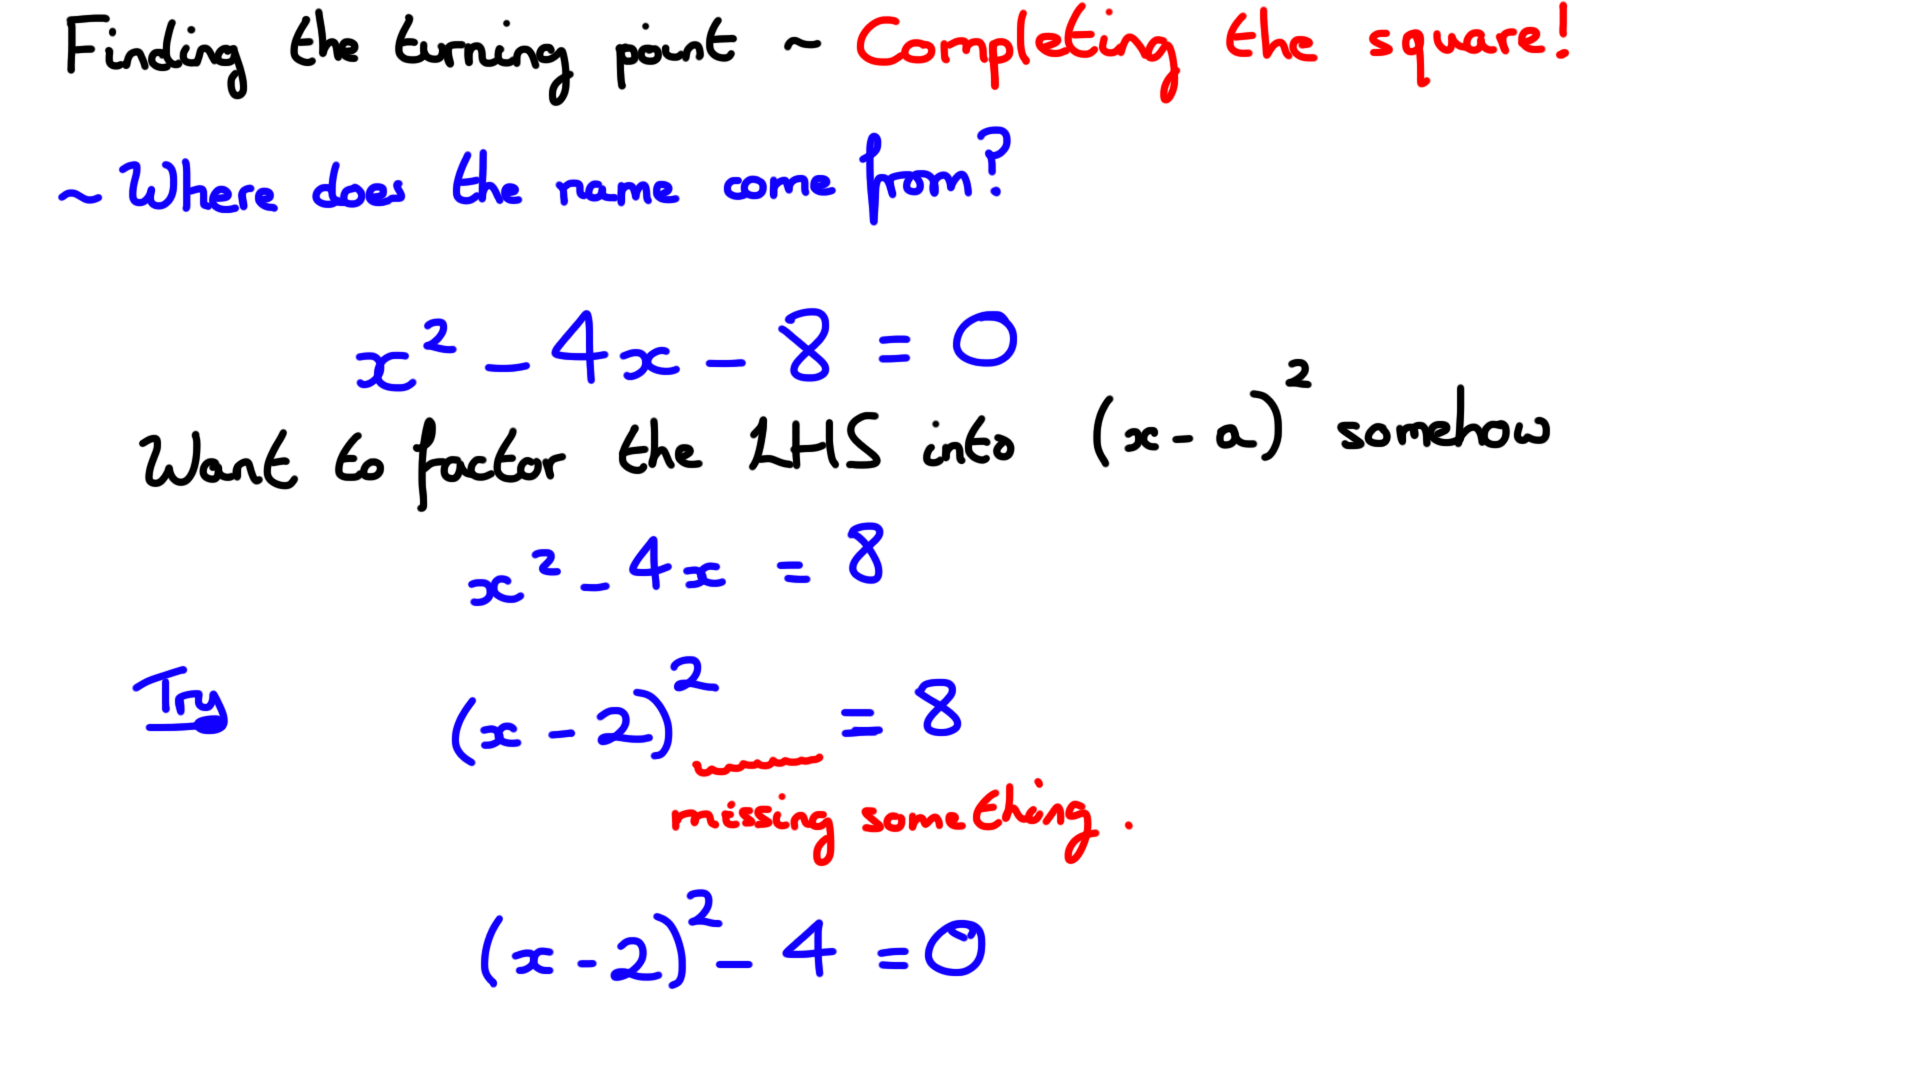 Finding the turning point ~ Completing the square!
~ Where does the name come from?
x² - 4x - 8 = 0
Want to factor the LHS into (x - a)² somehow
x² - 4x = 8
Try (x - 2)² = 8
missing something.
(x - 2)² - 4 = 0